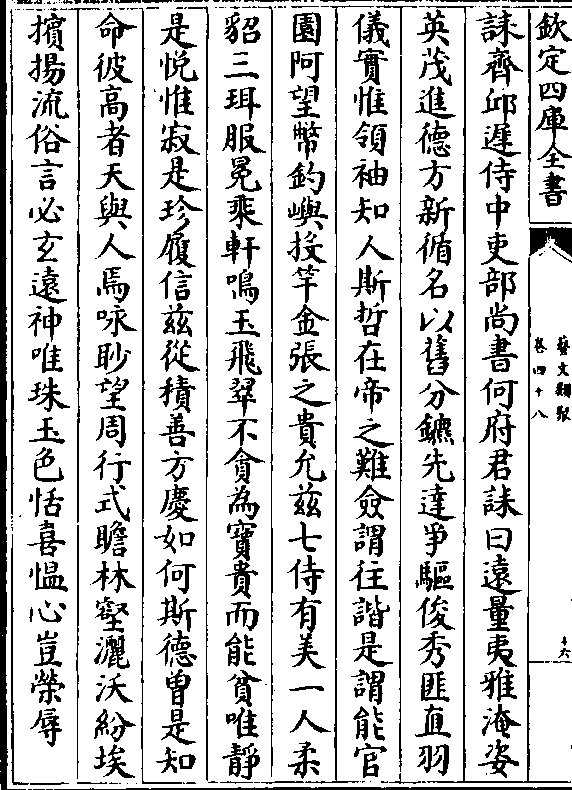 欽定四庫全書
藝文類聚
卷四十八
十六
誄齊邱遲侍中吏部尚書何府君誄曰遠量夷雅淹姿
英茂進德方新循名以舊分鑣先達爭驅俊秀匪直羽
儀實惟領袖知人斯哲在帝之難僉謂往諧是謂能官
園阿望幣釣嶼投竿金張之貴允兹七侍有美一人柔
貂三珥服冕乘軒鳴玉飛翠不貪為寶貴而能貧唯靜
是悦惟寂是珍履信兹從積善方慶如何斯德曽是知
命彼高者天與人焉咏眇望周行式瞻林壑灑沃紛埃
擯揚流俗言必玄遠神唯珠玉色恬喜愠心豈榮辱